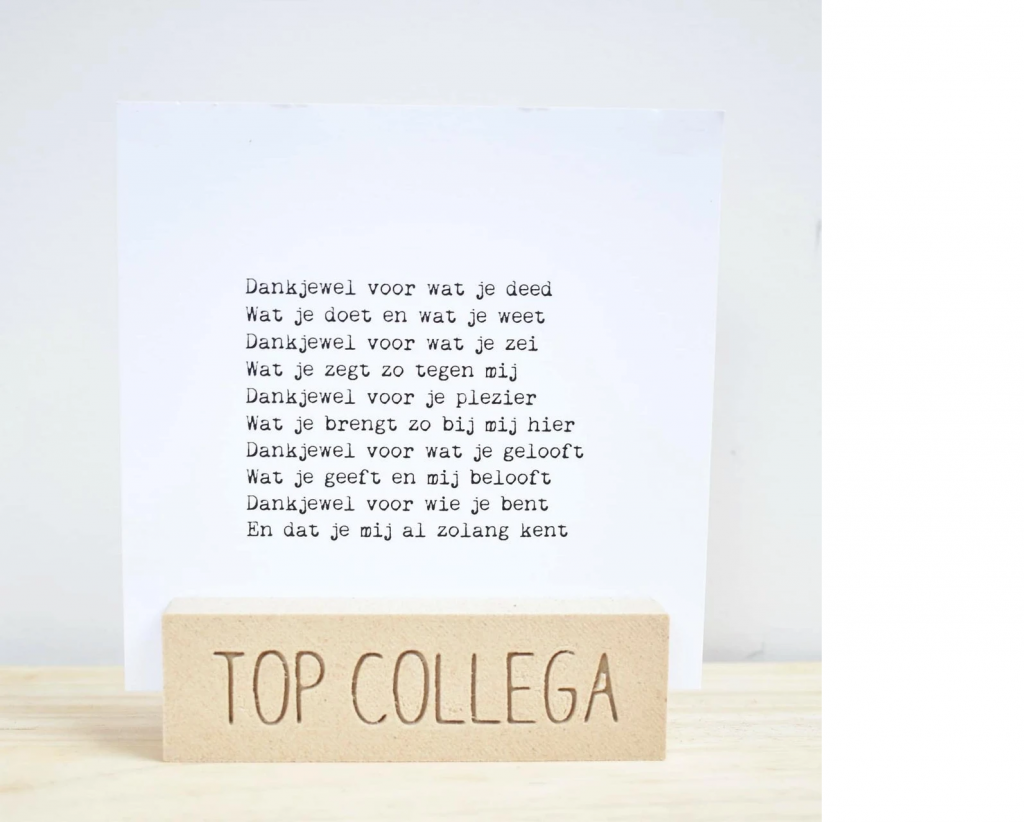 Dankjewel voor wat je deed
Wat je doet en wat je weet
Dankjewel voor wat je zei
Wat je zegt zo tegen mij
Dankjewel voor je plezier
Wat je brengt zo bij mij hier
Dankjewel voor wat je gelooft
Wat je geeft en mij belooft
Dankjewel voor wie je bent
En dat je mij al zolang kent
TOP COLLEGA